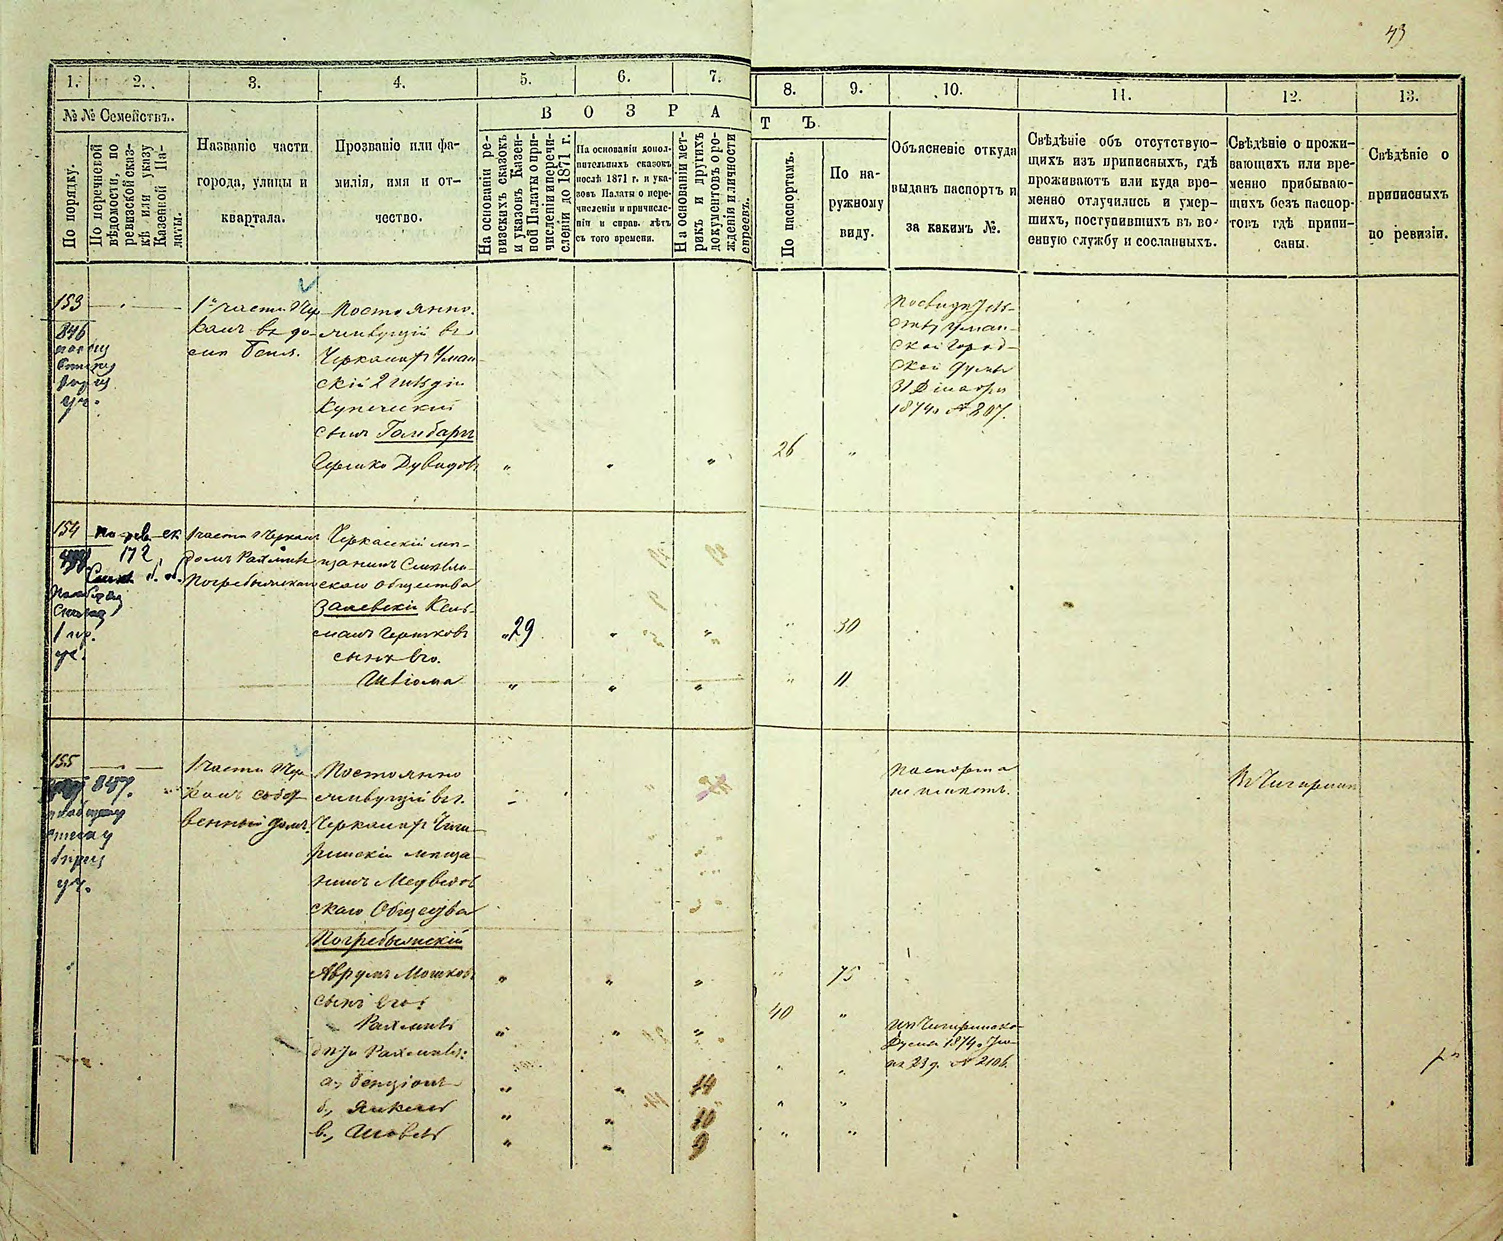 43
1. 2. 3. 4. 5. 6. 7. 8. 9. 10. 11. 12. 13.
№№ Семействъ.
По порядку.
По перечневой
вѣдомости, по
ревизской сказ-
кѣ или указу
Казенной Па-
латы.
Названіе части
города, улицы и
квартала.
Прозваніе или фа-
милія, имя и от-
чество.
ВОЗРАСТЪ
На основаніи ре-
визскихъ сказокъ
и указовъ Казен-
ной Палаты о при-
численіи и перечи-
сленіи до 1871 г.
На основаніи допол-
нительныхъ сказокъ
послѣ 1871 г. и ука-
зовъ Палаты о пере-
численіи и причисле-
ніи и справ. лѣтъ
съ того времени.
На основаніи мет-
рикъ и другихъ
документовъ о ро-
жденіи и личности
евреевъ.
По паспортамъ.
По на-
ружному
виду.
Объясненіе откуда
выданъ паспортъ и
за какимъ №.
Свѣдѣніе объ отсутствую-
щихъ изъ приписныхъ, гдѣ
проживаютъ или куда вре-
менно отлучились и умер-
шихъ, поступившихъ въ во-
енную службу и сосланныхъ.
Свѣдѣніе о прожи-
вающихъ или вре-
менно прибываю-
щихъ безъ паспор-
товъ гдѣ припи-
саны.
Свѣдѣніе о
приписныхъ
по ревизіи.
153
846
уч.
1й части Чер
касъ въ до-
Постоянно
живущій въ
Черкассахъ Уман
скій 2 гильдіи
Купеческій
сынъ Гольдбергъ
Гершко Дувидовъ " " " 26 "
По свидѣтель-
ству Уман-
ской Город-
ской Думы
31 Января
1874 № 207.
154
По рев. ск
172
1 части Черкасъ
домъ Рахмиля
Погребынскаго
Черкаскій мѣ-
щанинъ Смѣлян-
скаго общества
Залевскій Кель-
манъ Гершковъ " 29 " " " 30
сынъ его.
Шлёма " " " " 11
1 пр.
уч.
155
847.
уч.
1 части Чер
касъ собст
венный домъ
Постоянно
живущій въ
Черкассахъ Чиги-
ринскій мѣща-
нинъ Медвѣдов
скаго Общества
Погребынскій
Аврумъ Мошковъ " " " " 75
сынъ его:
Рахмиль " " " 40 "
дѣти Рахмиля:
а., Бенціонъ " " 14 " "
б., Янкель " " 10 " "
в., Шовель " " 9 " "
Паспорта
не имѣютъ.
Изъ Чигиринской
Думы 1874 г. Ію-
ня 23 д. № 2106.
Въ Чигиринѣ